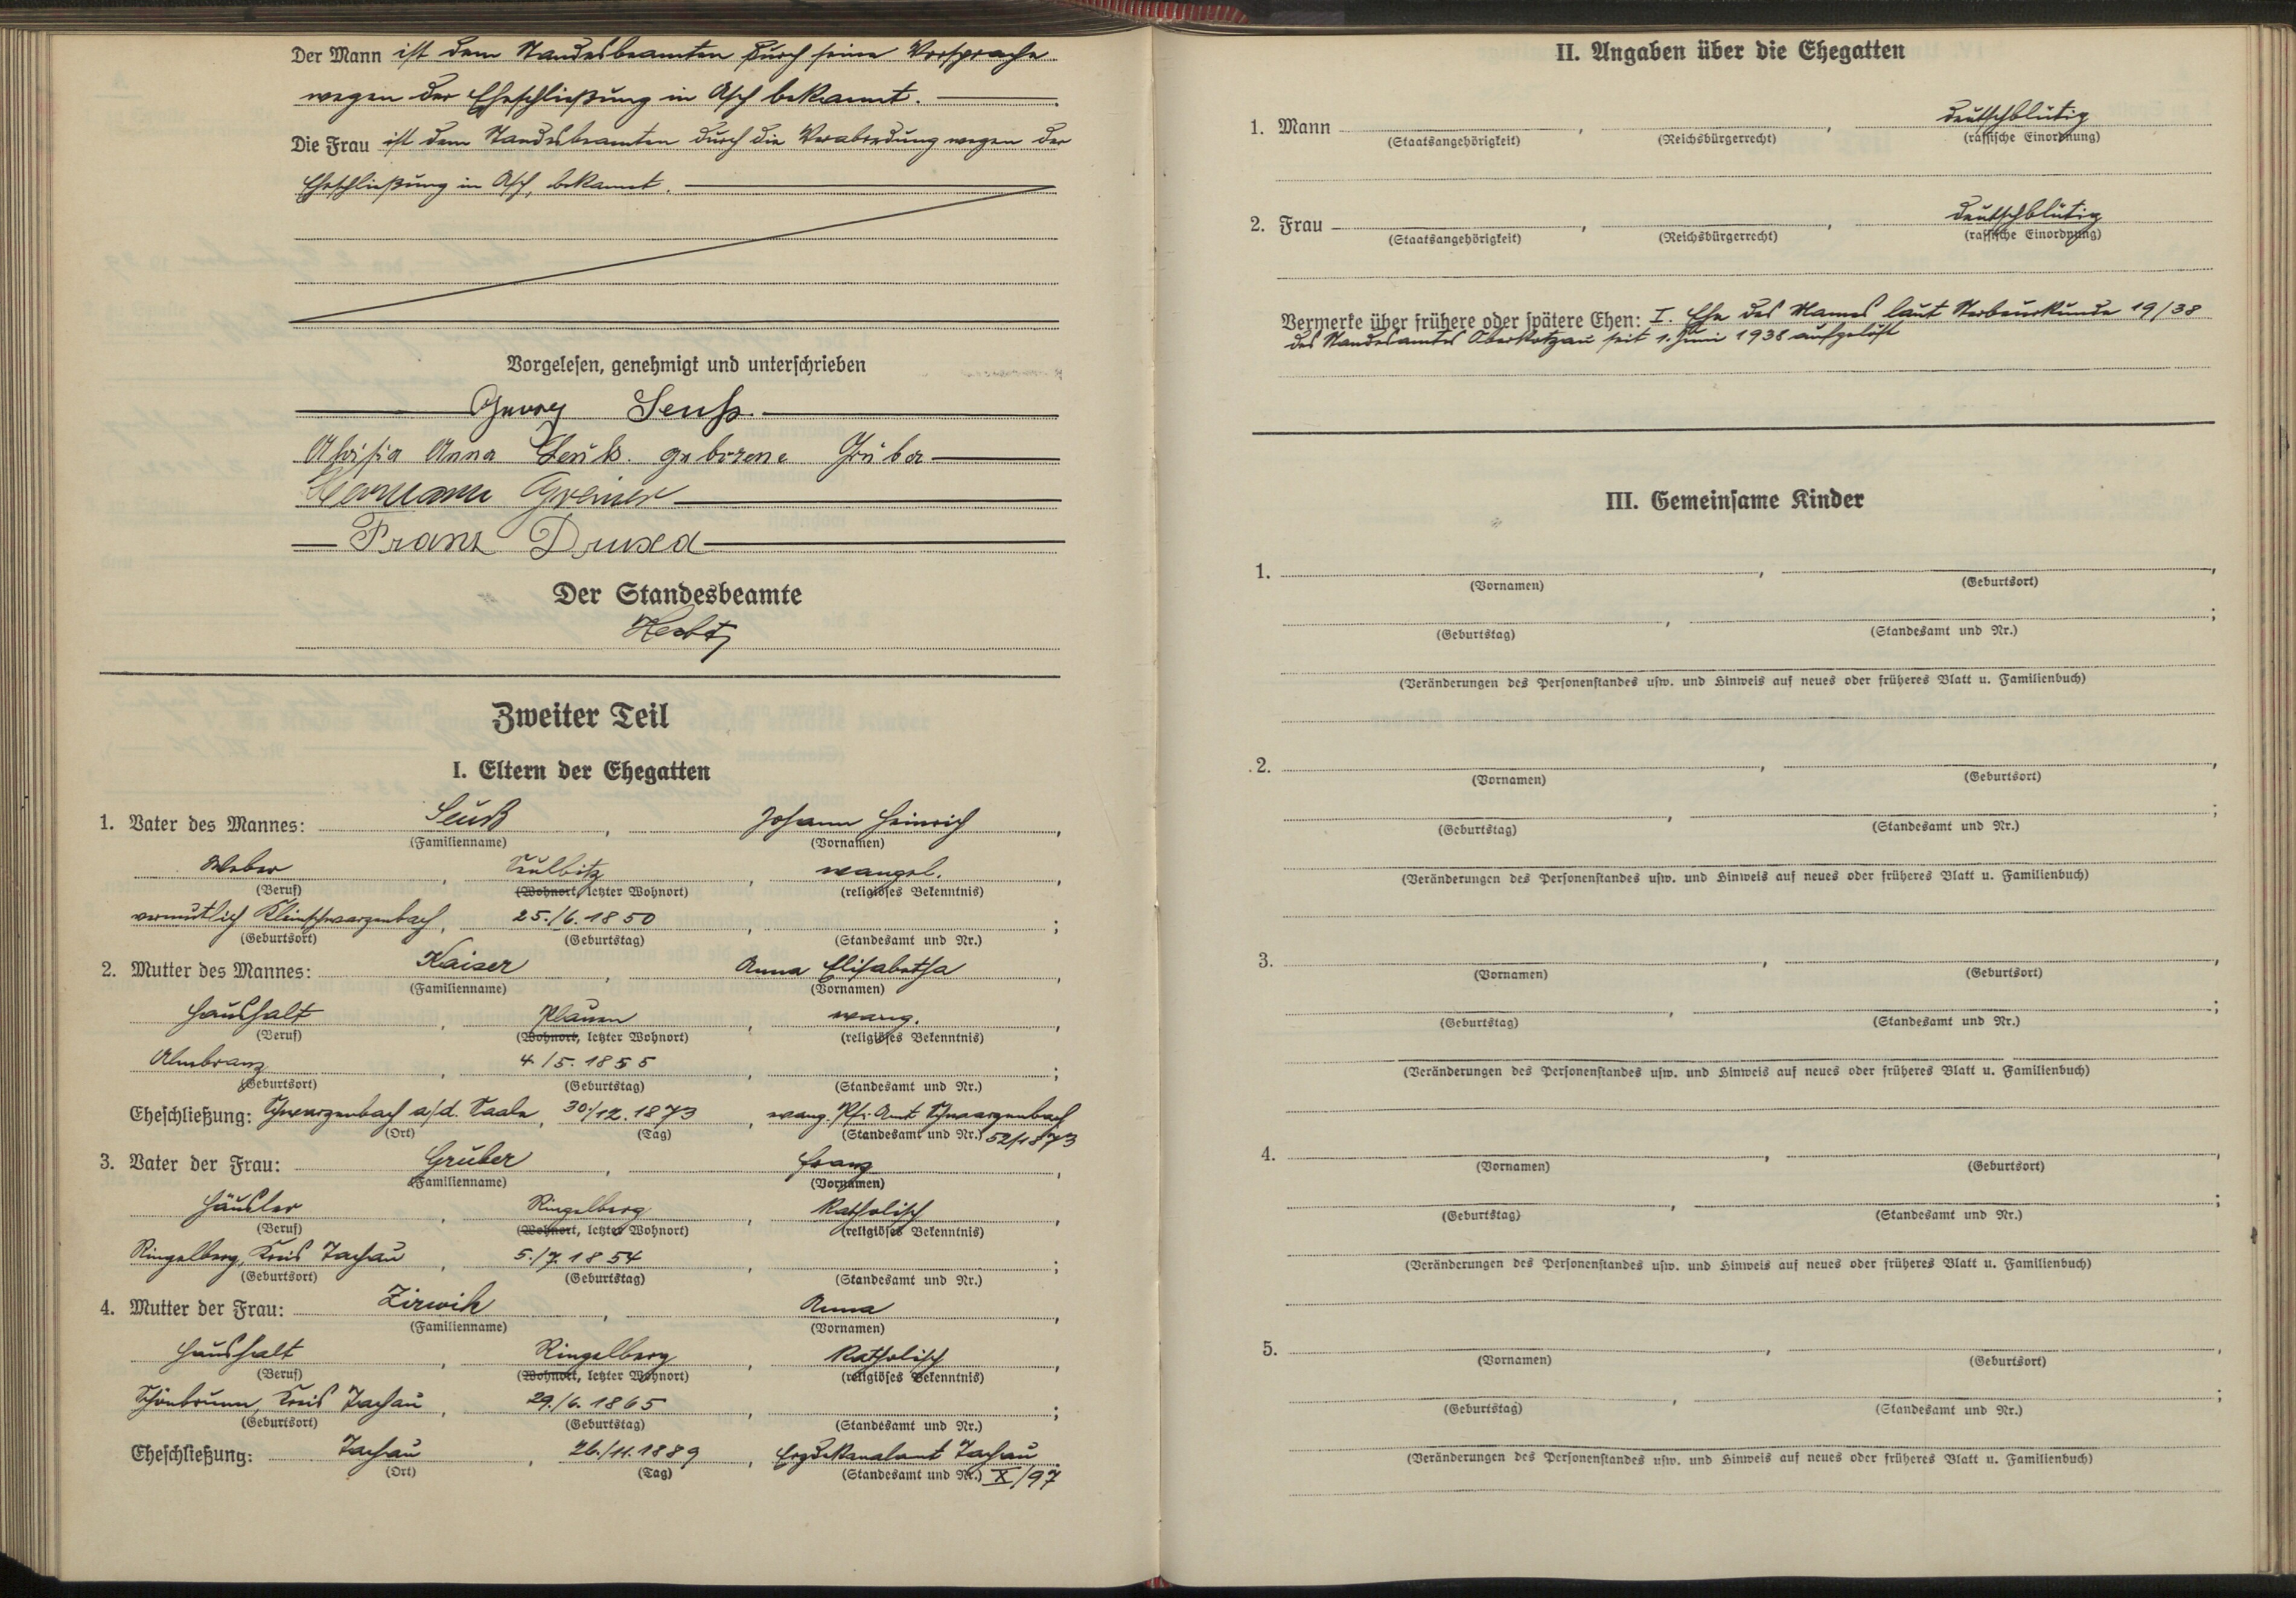 Der Mann ist dem Standesbeamten durch seine Vorsprache
wegen der Eheschließung in Asch bekannt.
Die Frau ist dem Standesbeamten durch die Verabredung wegen der
Eheschließung in Asch, bekannt.
Vorgelesen, genehmigt und unterschrieben
Georg Seuß.
Aloisia Anna Seuß. geborene Gruber
Hermann Greiner
Franz Druxa
Der Standesbeamte
Zweiter Teil
I. Eltern der Ehegatten
1. Vater des Mannes: Seuß, Johann Heinrich,
(Familienname) (Vornamen)
Weber, Seulbitz, evangel.,
(Beruf) (Wohnort, letzter Wohnort) (religiöses Bekenntnis)
vermutlich Kleinschwarzenbach, 25./6.1850, ;
(Geburtsort) (Geburtstag) (Standesamt und Nr.)
2. Mutter des Mannes: Kaiser, Anna Elisabetha,
(Familienname) (Vornamen)
Haushalt, Plauen, evang.,
(Beruf) (Wohnort, letzter Wohnort) (religiöses Bekenntnis)
Almbranz, 4/5.1855, ;
(Geburtsort) (Geburtstag) (Standesamt und Nr.)
Eheschließung: Schwarzenbach a/d. Saale, 30./12.1873, evang. Pfr. Amt Schwarzenbach
(Ort) (Tag) (Standesamt und Nr.) 52/1873
3. Vater der Frau: Gruber, Franz,
(Familienname) (Vornamen)
Häusler, Ringelberg, Katholisch,
(Beruf) (Wohnort, letzter Wohnort) (religiöses Bekenntnis)
Ringelberg, Kreis Tachau, 5./7.1854, ;
(Geburtsort) (Geburtstag) (Standesamt und Nr.)
4. Mutter der Frau: Zirwik, Anna,
(Familienname) (Vornamen)
Haushalt, Ringelberg, Katholisch,
(Beruf) (Wohnort, letzter Wohnort) (religiöses Bekenntnis)
Schönbrunn, Kreis Tachau, 29./6.1865, ;
(Geburtsort) (Geburtstag) (Standesamt und Nr.)
Eheschließung: Tachau, 26./11.1889, Erzdekanalamt Tachau
(Ort) (Tag) (Standesamt und Nr.) X/97
II. Angaben über die Ehegatten
1. Mann , , deutschblütig
(Staatsangehörigkeit) (Reichsbürgerrecht) (rassische Einordnung)
2. Frau , , deutschblütig
(Staatsangehörigkeit) (Reichsbürgerrecht) (rassische Einordnung)
Vermerke über frühere oder spätere Ehen: I. Ehe des Mannes laut Sterbeurkunde 19/38
des Standesamtes Oberkotzau seit 1. Juni 1938 aufgelöst
III. Gemeinsame Kinder
1. , ,
(Vornamen) (Geburtsort)
, ;
(Geburtstag) (Standesamt und Nr.)
(Veränderungen des Personenstandes usw. und Hinweis auf neues oder früheres Blatt u. Familienbuch)
2. , ,
(Vornamen) (Geburtsort)
, ;
(Geburtstag) (Standesamt und Nr.)
(Veränderungen des Personenstandes usw. und Hinweis auf neues oder früheres Blatt u. Familienbuch)
3. , ,
(Vornamen) (Geburtsort)
, ;
(Geburtstag) (Standesamt und Nr.)
(Veränderungen des Personenstandes usw. und Hinweis auf neues oder früheres Blatt u. Familienbuch)
4. , ,
(Vornamen) (Geburtsort)
, ;
(Geburtstag) (Standesamt und Nr.)
(Veränderungen des Personenstandes usw. und Hinweis auf neues oder früheres Blatt u. Familienbuch)
5. , ,
(Vornamen) (Geburtsort)
, ;
(Geburtstag) (Standesamt und Nr.)
(Veränderungen des Personenstandes usw. und Hinweis auf neues oder früheres Blatt u. Familienbuch)